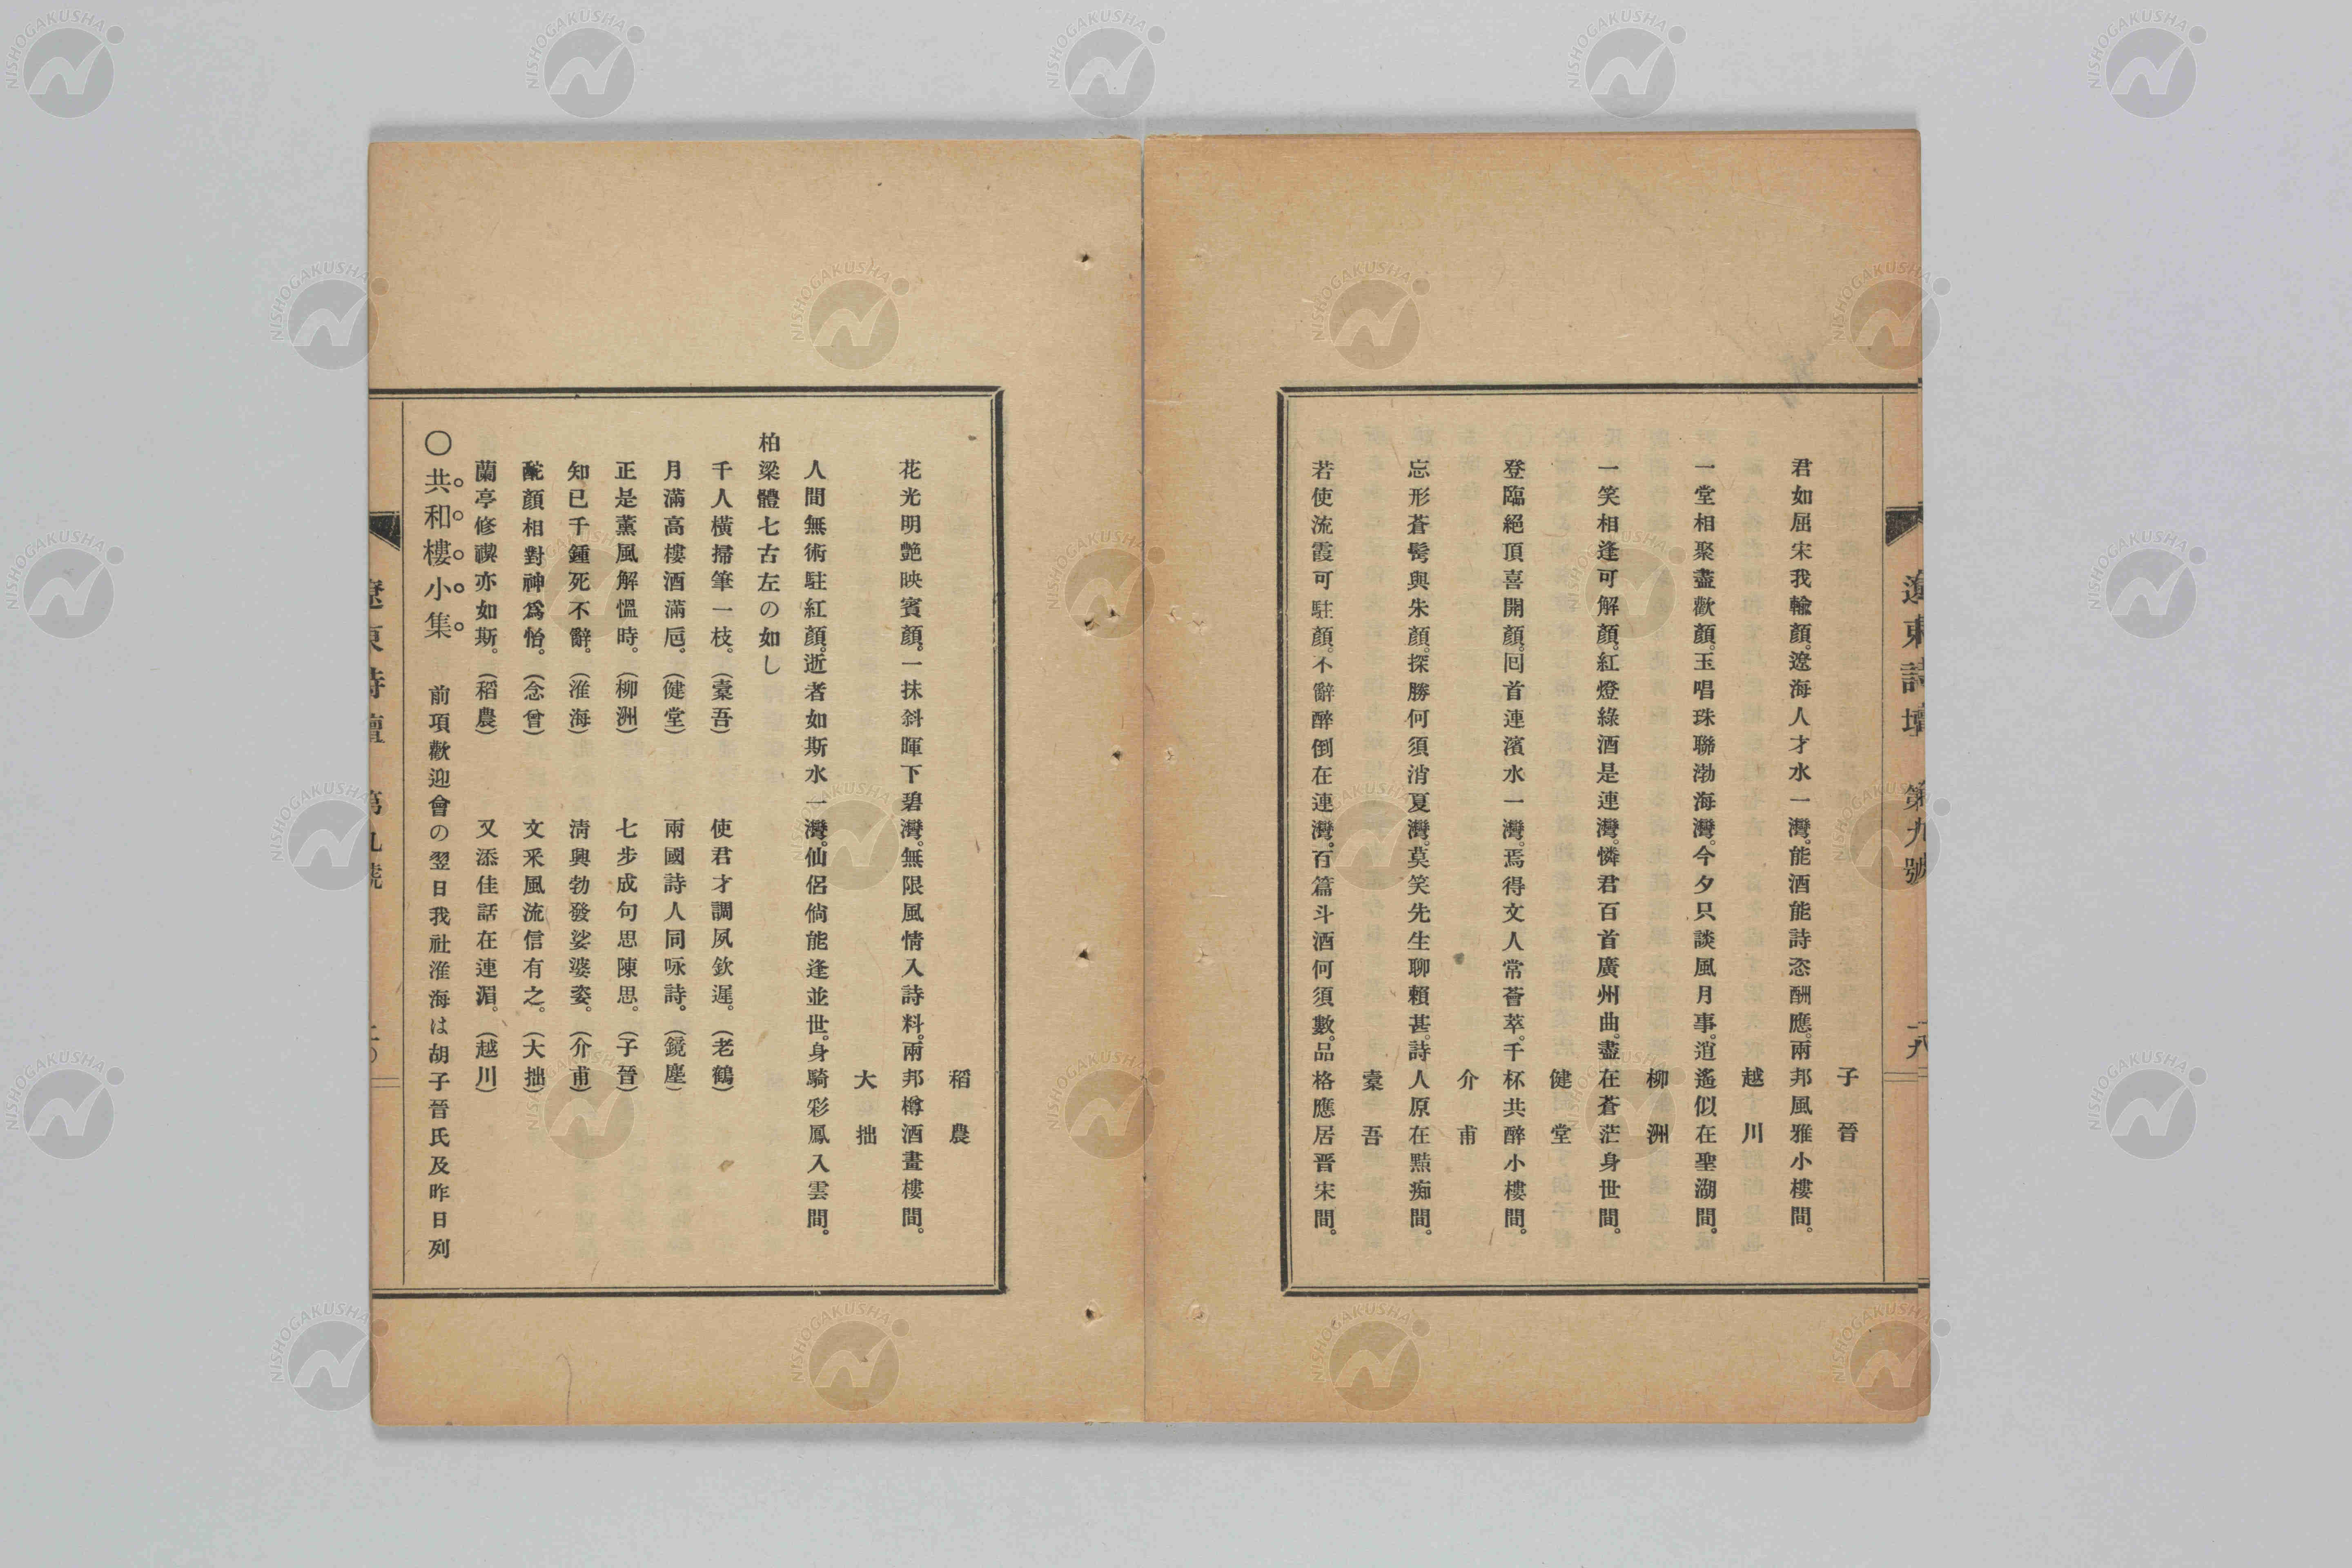 遼東詩壇 第九號
子晉
君如屈宋我輸顏。遼海人才水一灣。能酒能詩恣酬應。兩邦風雅小樓間。
越川
一堂相聚盡歡顏。玉唱珠聯渤海灣。今夕只談風月事。逍遙似在聖湖間。
柳洲
一笑相逢可解顏。紅燈綠酒是連灣。憐君百首廣州曲。盡在蒼茫身世間。
健堂
登臨絕頂喜開顏。回首連濱水一灣。焉得文人常薈萃。千杯共醉小樓間。
介甫
忘形蒼髩與朱顏。探勝何須消夏灣。莫笑先生聊賴甚。詩人原在黠痴間。
槖吾
若使流霞可駐顏。不辭醉倒在連灣。百篇斗酒何須數。品格應居晋宋間。
稻農
花光明艷映賓顏。一抹斜暉下碧灣。無限風情入詩料。兩邦樽酒畫樓間。
大拙
人間無術駐紅顏。逝者如斯水一灣。仙侶倘能逢並世。身騎彩鳳入雲間。
柏梁體七古左の如し
千人橫掃筆一枝。(槖吾) 使君才調夙欽遲。(老鶴)
月滿高樓酒滿卮。(健堂) 兩國詩人同咏詩。(鏡塵)
正是薰風解慍時。(柳洲) 七步成句思陳思。(子晉)
知已千鍾死不辭。(淮海) 淸興勃發娑婆姿。(介甫)
酡顏相對神爲怡。(念曾) 文釆風流信有之。(大拙)
蘭亭修禊亦如斯。(稻農) 又添佳話在連湄。(越川)
〇共和樓小集 前項歡迎會の翌日我社淮海は胡子晉氏及昨日列
遼東詩壇 第九號